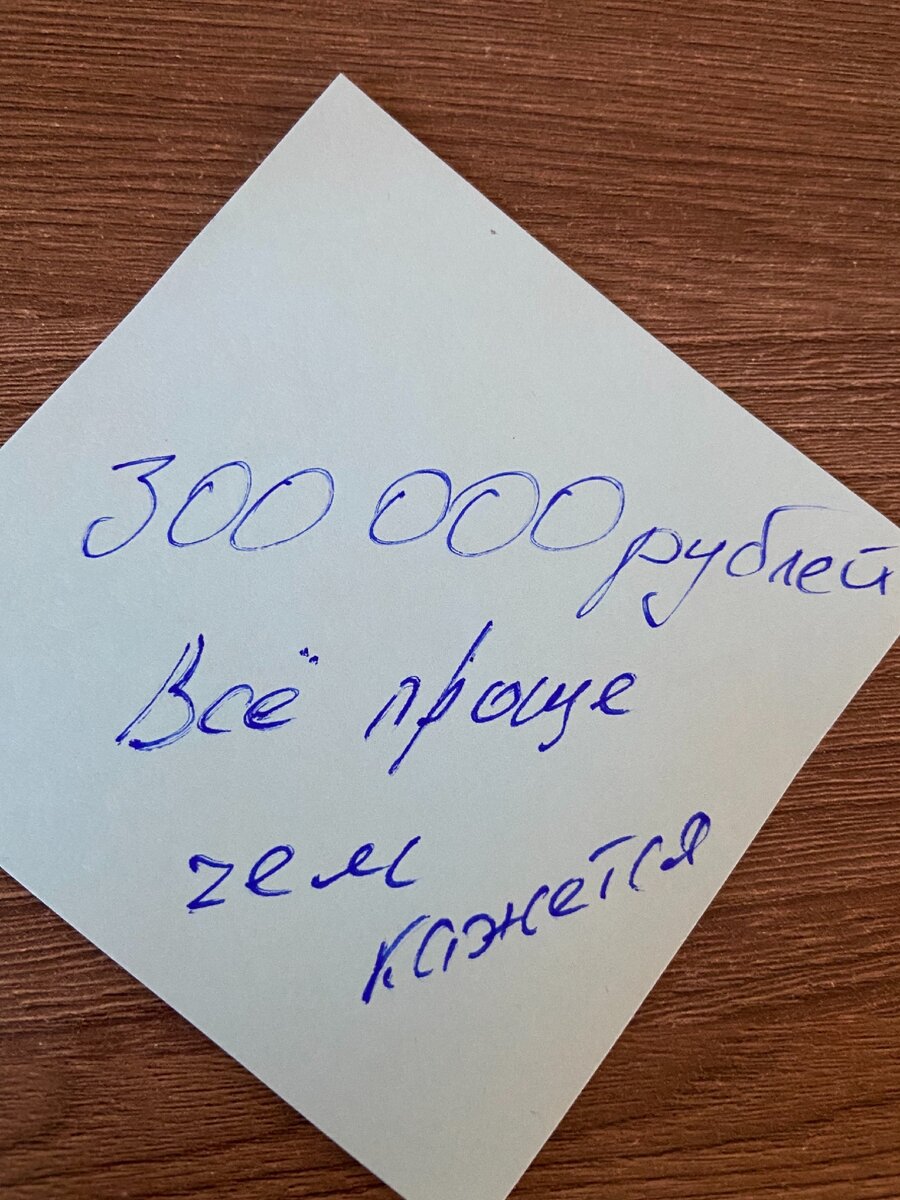 300 000 рублей
Всё проще
чем
кажется